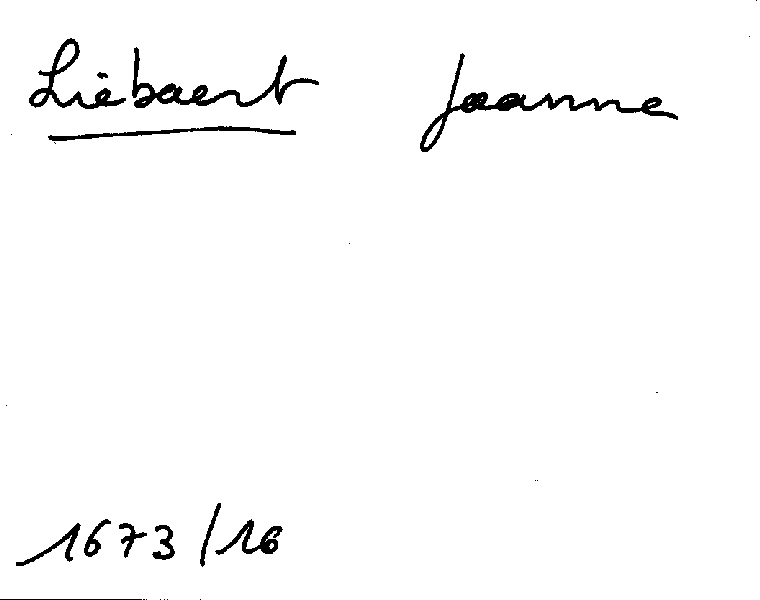 Liebaert Joanne
1673/16